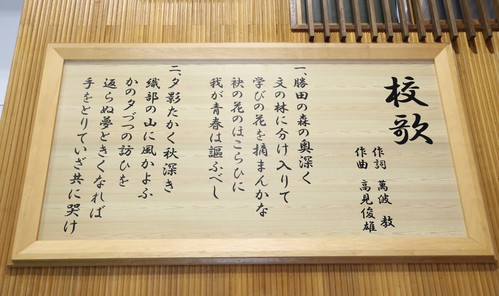 校歌
作詞 萬波 教
作曲 高見俊雄
一、勝田の森の奥深く
文の林に分け入りて
学びの花を摘まんかな
秧の花のほこらひに
我が青春は謳ふべし
二、夕影たかく秋深き
織部の山に風かよふ
かの夕づつの訪ひを
返らぬ夢ときくなれば
手をとりていざ共に哭け